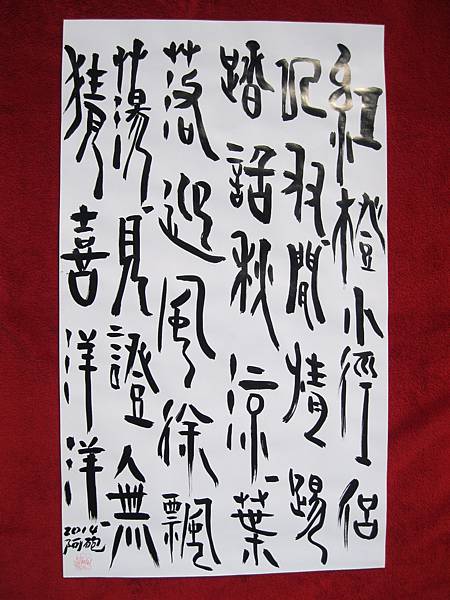 紅橙小徑侶
双閒情踢
踏話秋涼葉
落迎風徐飄
蕩見證人無
猜喜洋洋
2014
阿砲